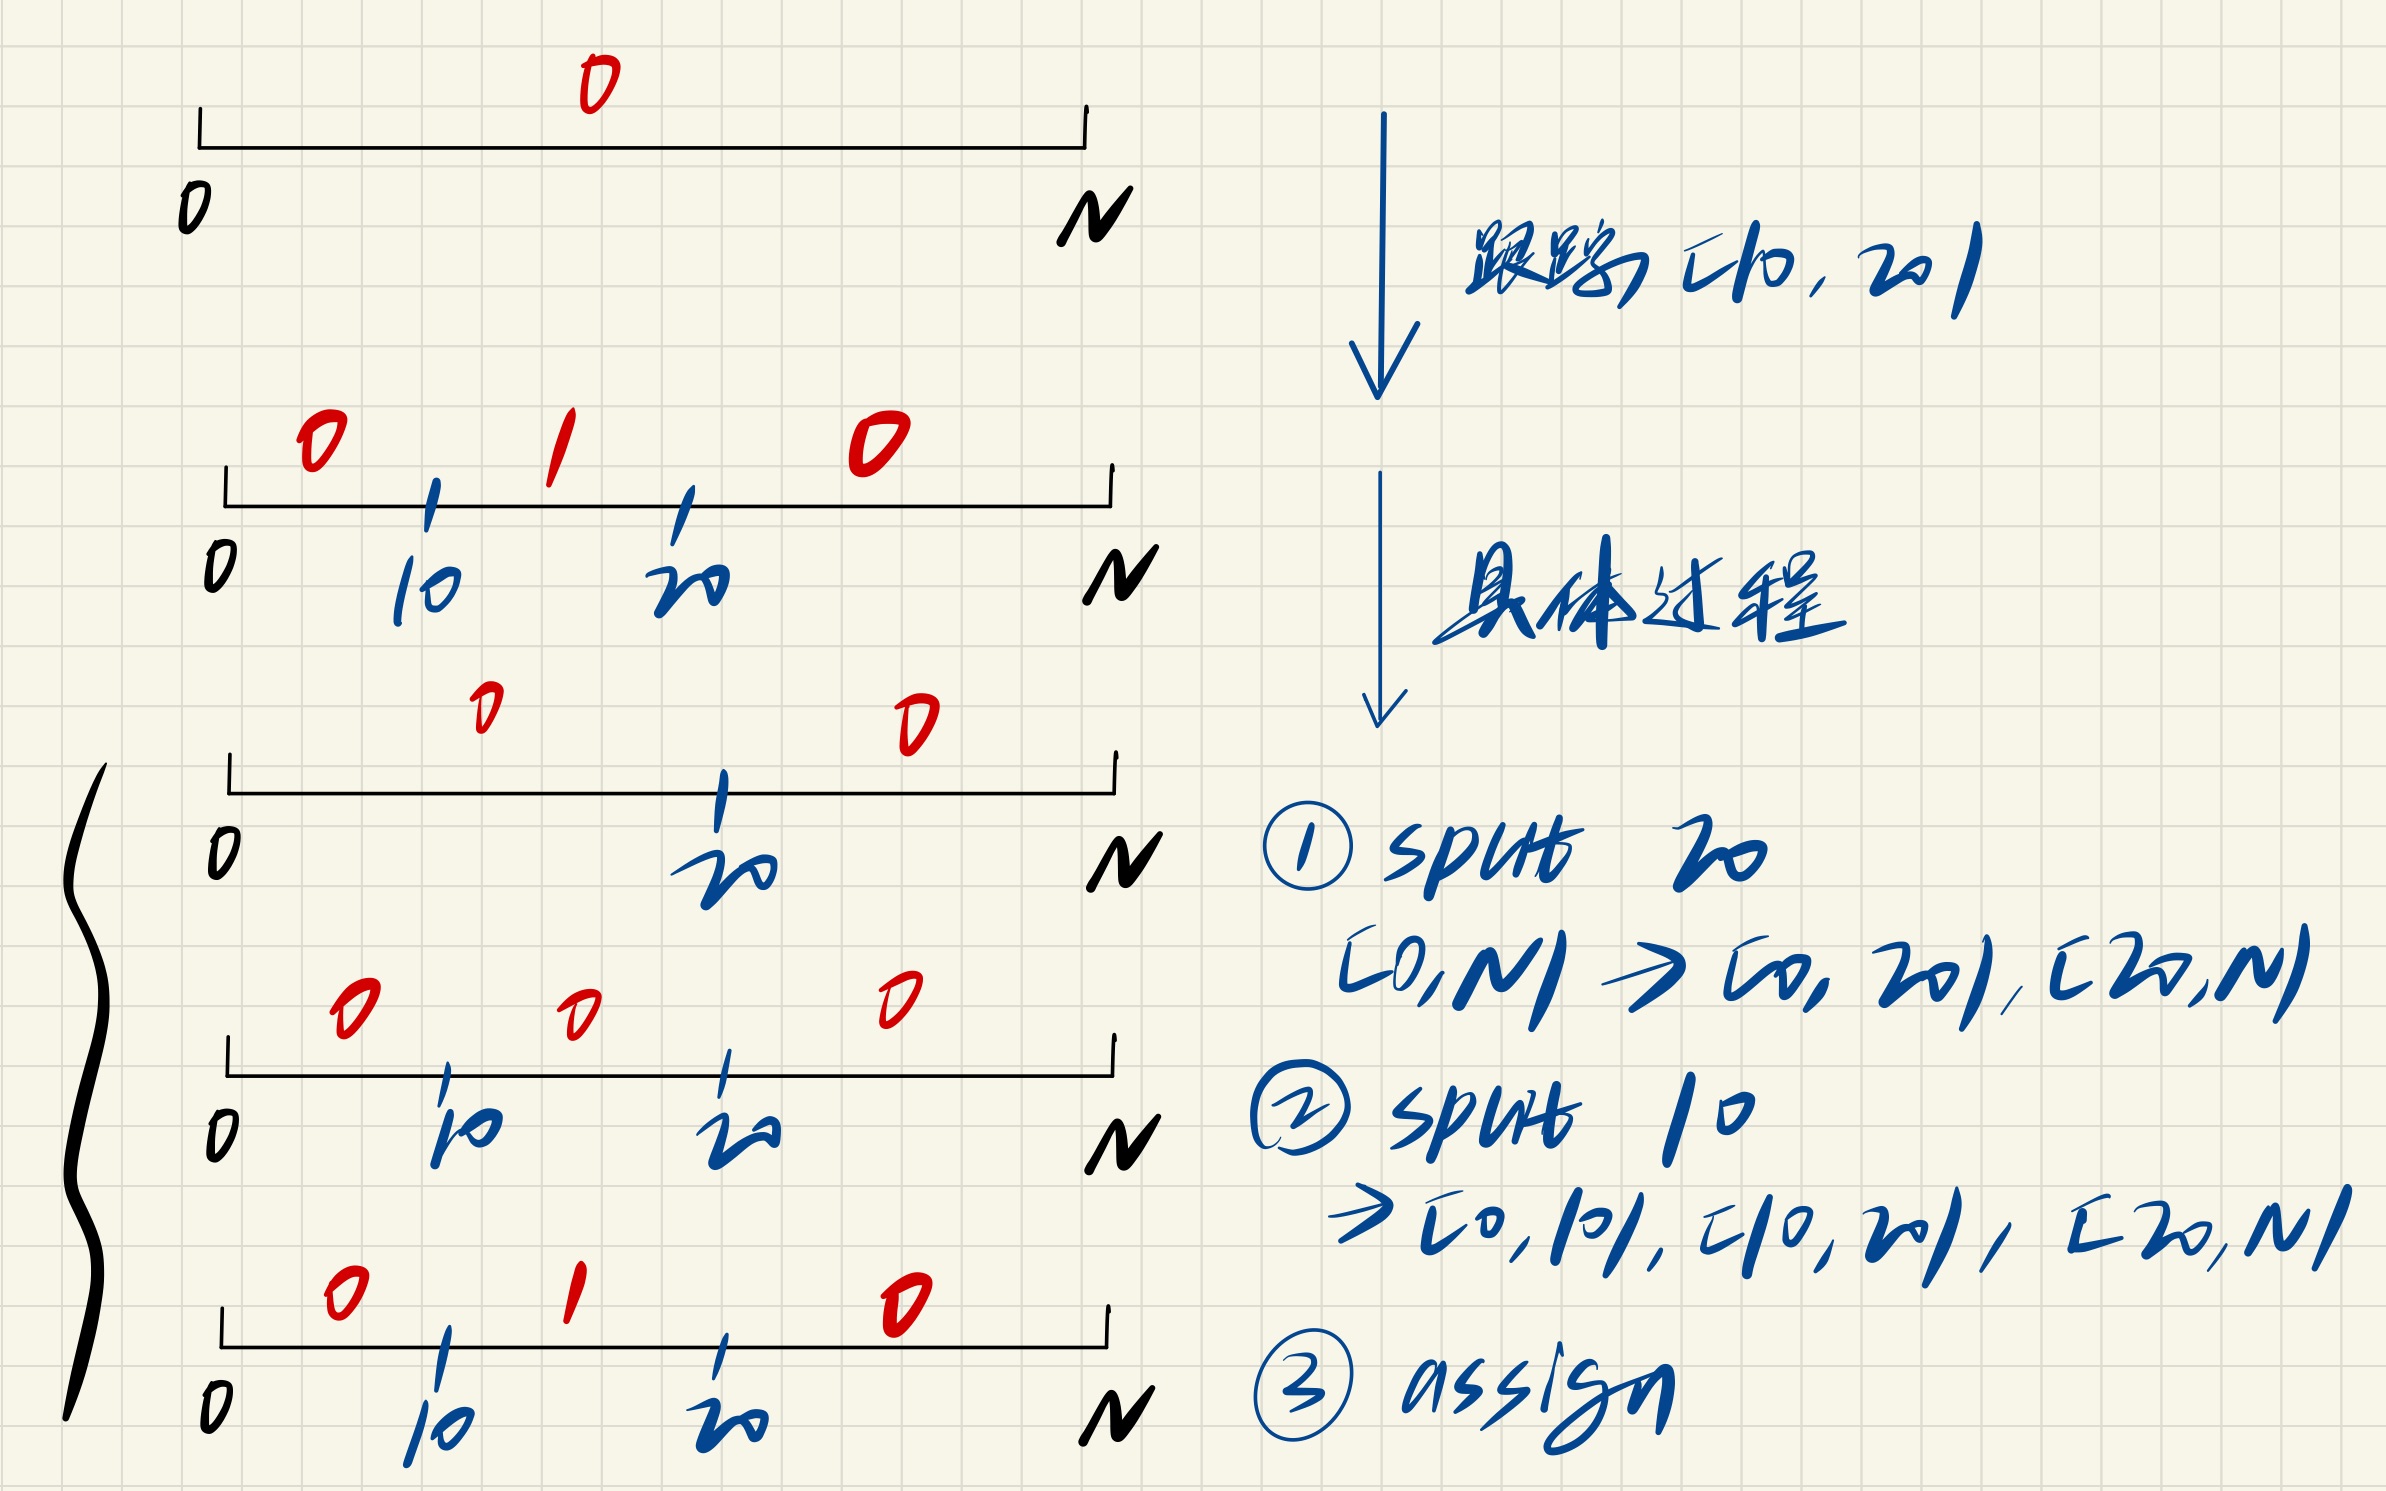 0
0 N
跟踪 [10, 20)
0 1 0
0 10 20 N
具体过程
0 0
0 20 N
① split 20
[0, N) → [0, 20), [20, N)
0 0 0
0 10 20 N
② split 10
→ [0, 10), [10, 20), [20, N)
0 1 0
0 10 20 N
③ assign